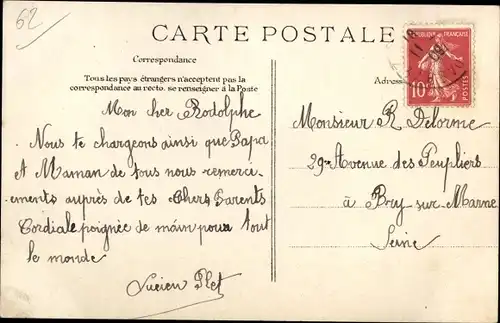 62
CARTE POSTALE
Correspondance
Tous les pays étrangers n'acceptent pas la
correspondance au recto. se renseigner à la Poste
Mon cher Rodolphe
Nous te chargeons ainsi que Papa
et Maman de tous nous remerci-
ements auprès de tes Chers Parents
Cordiale poignée de main pour tout
le monde
Lucien Plet
Adresse
REPUBLIQUE FRANÇAISE
10
POSTES
Monsieur R Delorme
29 Avenue des Peupliers
à Bry sur Marne
Seine